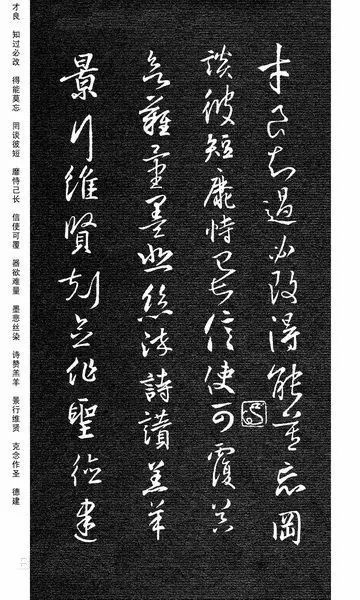 才良知過必改得能莫忘罔
談彼短靡恃己長信使可覆器
欲難量墨悲絲染詩讚羔羊
景行維賢剋念作聖德建
才良　知过必改　得能莫忘　罔谈彼短　靡恃己长　信使可覆　器欲难量　墨悲丝染　诗赞羔羊　景行维贤　克念作圣　德建